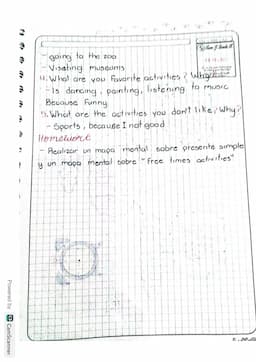 - going to the zoo
- Visating museums
4. What are you favorite activities? Why?
- Is dancing, painting, listening to music
Because funny
5. What are the activities you don't like, Why?
- Sports, because I not good
Homework
- Realizar un mapa mental sobre presente simple
y un mapa mental sobre "free times activities"
Powered by CS CamScanner